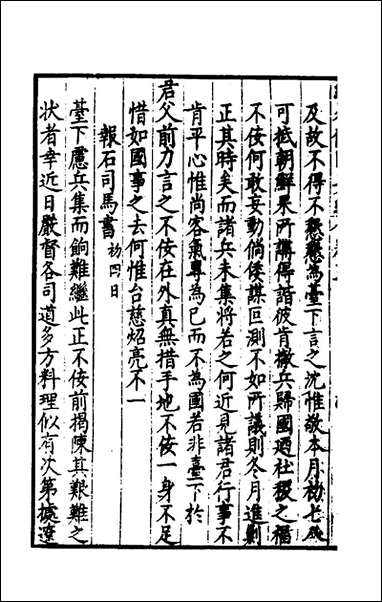 及故不得不懇懇為臺下言之沈惟敬本月初七
可抵朝鮮果所講停諧彼肯撤兵歸國迺社稷之福
不佞何敢妄動倘倭謀叵測不如所議則冬月進剿
正其時矣而諸兵未集將若之何近見諸君行事不
肯平心惟尚客氣專為已而不為國若非臺下於
君父前力言之不佞在外真無措手地不佞一身不足
惜如國事之去何惟台慈炤亮不一
報石司馬書初四日
臺下慮兵集而餉難繼此正不佞前揭陳其艱難之
狀者幸近日嚴督各司道多方料理似有次第據遼